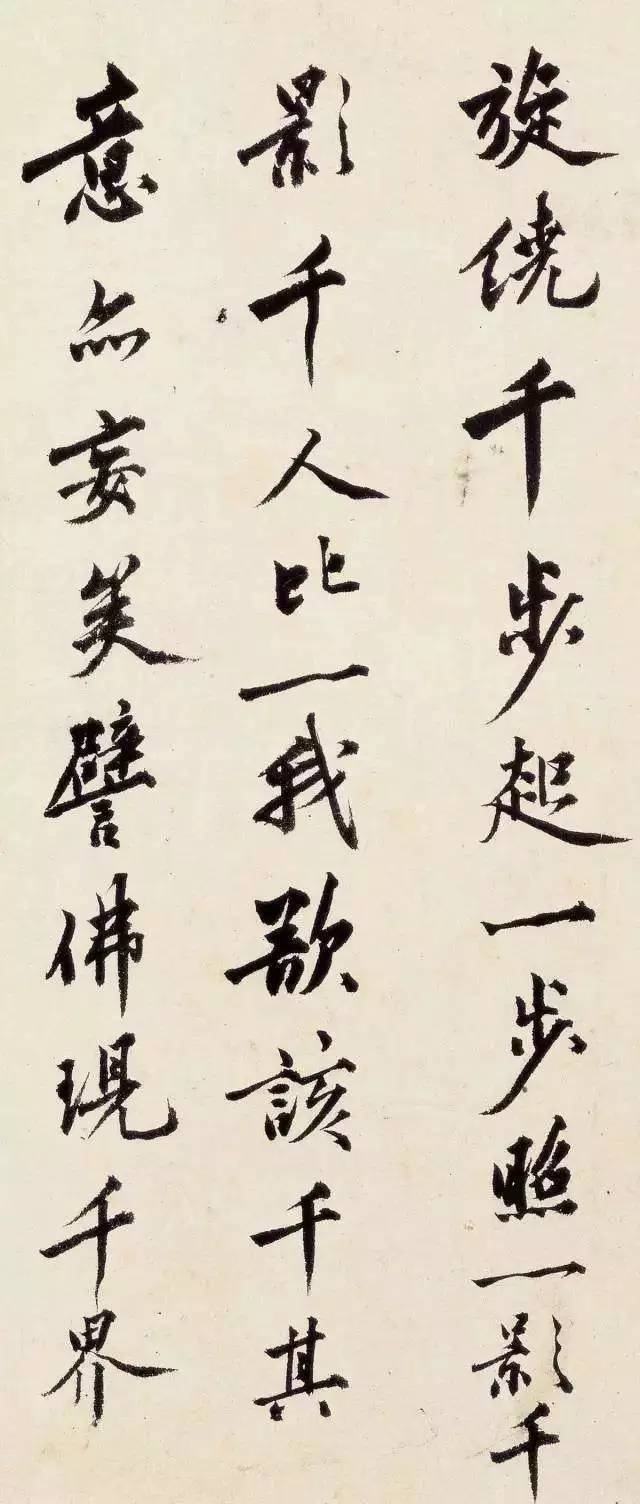 旋繞千步起一步照一影千
影千人比一我歃該千其
意亦妄矣譬佛現千界